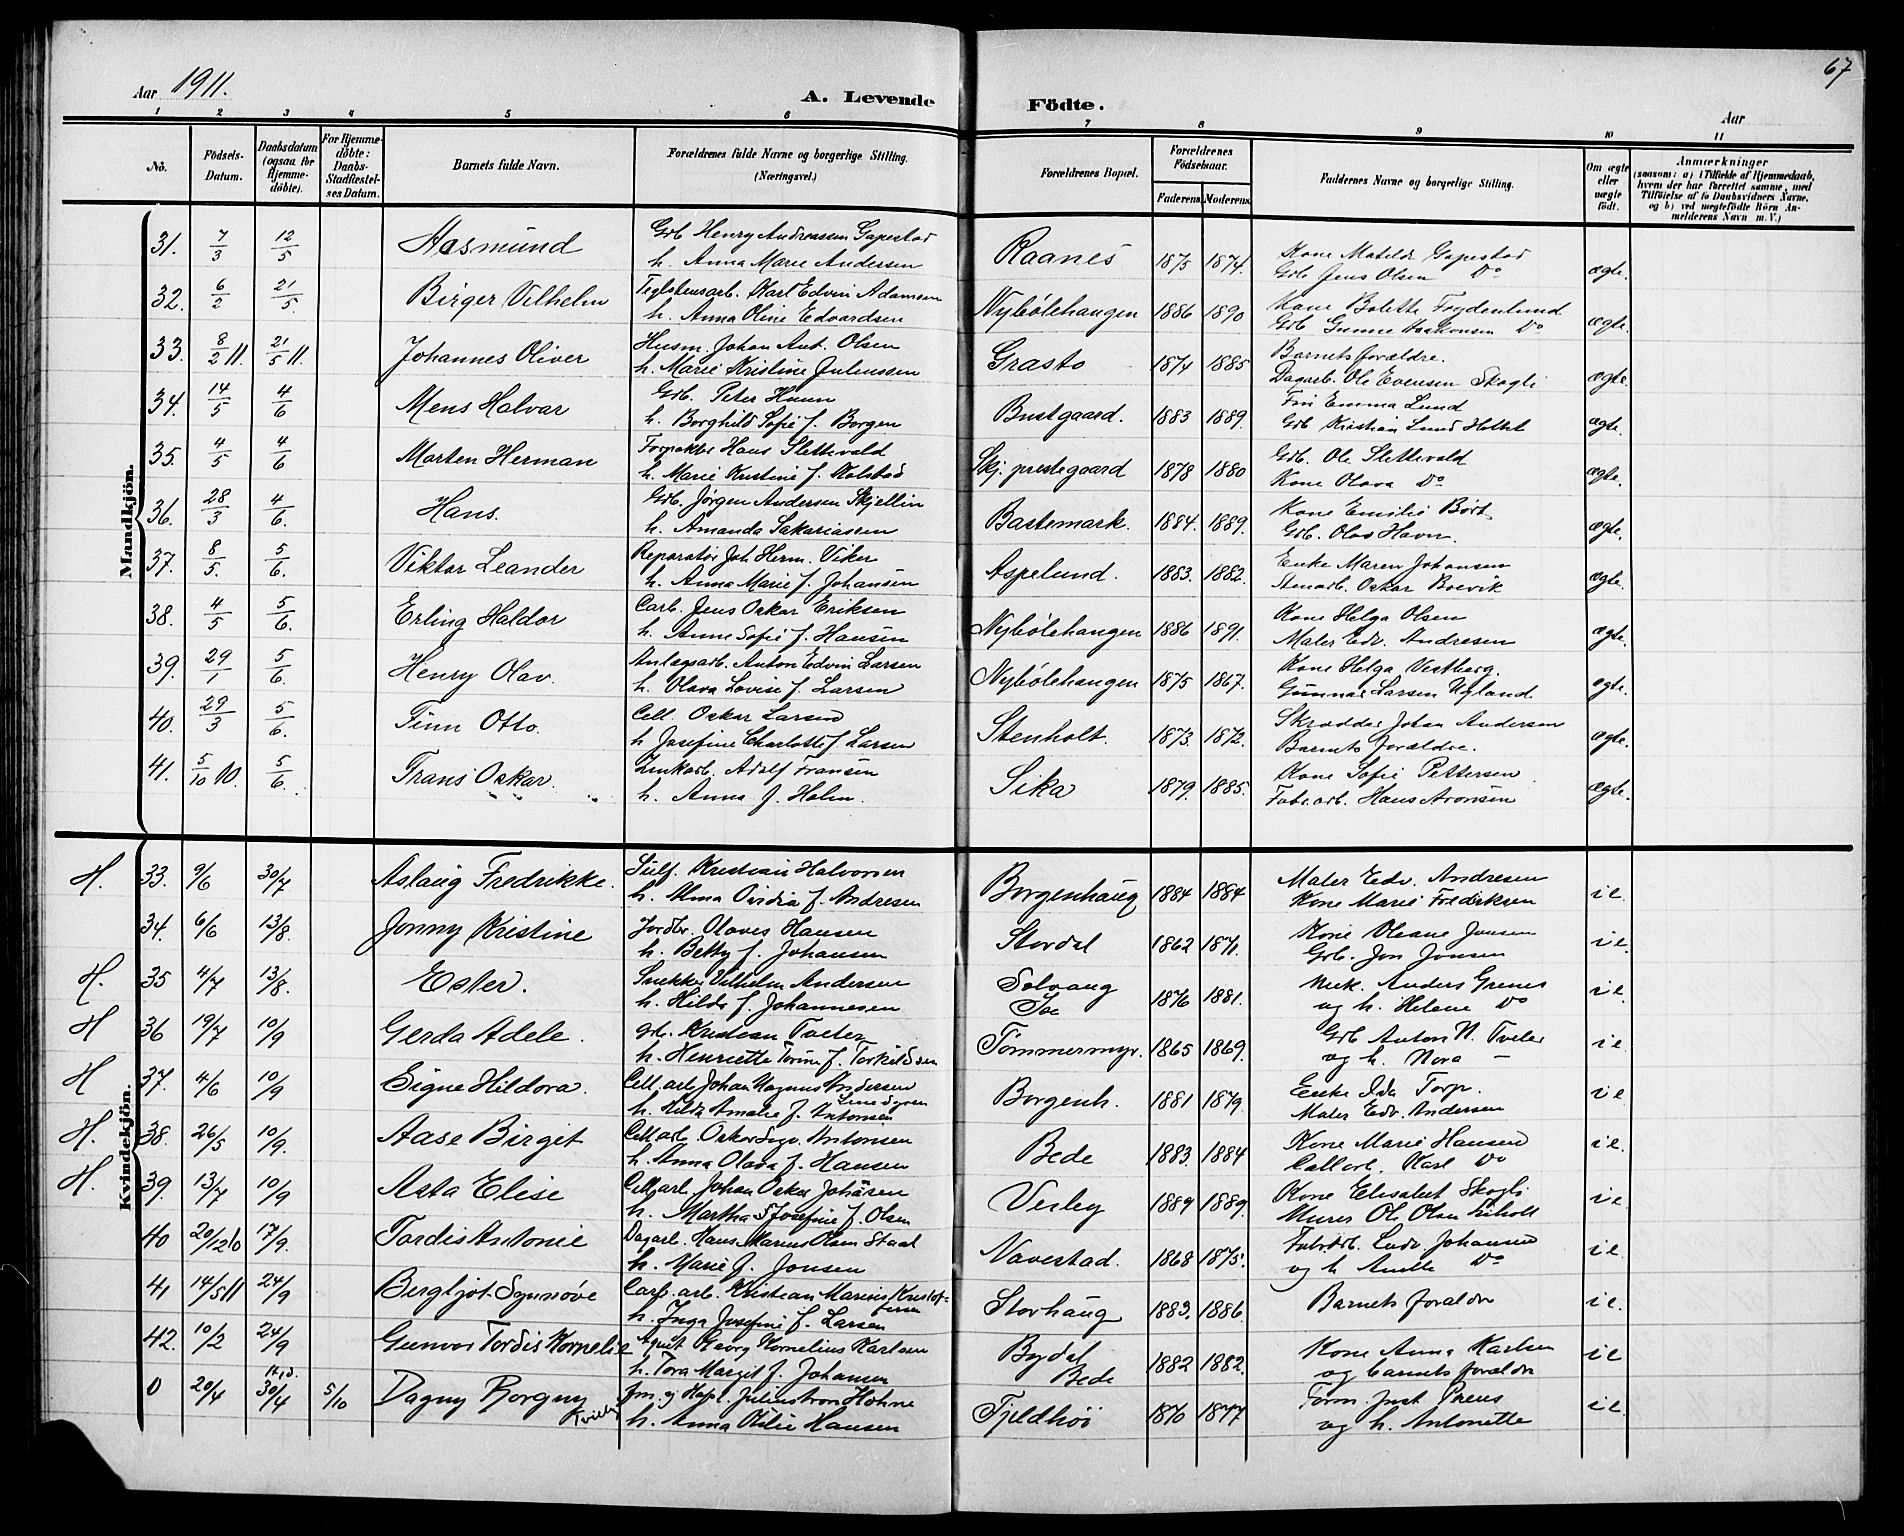 67
Aar 1911.
A. Levende Födte.
Aar
1 2 3 4 5 6 7 8 9 10 11
No. Födsels-Datum. Daabsdatum (ogsaa for Hjemmedöbte). For Hjemmedöbte: Daabs-Stadfæstelses Datum. Barnets fulde Navn. Forældrenes fulde Navne og borgerlige Stilling. (Næringsvei.) Forældrenes Bopæl. Forældrenes Födselsaar. Faderens. Moderens. Faddernes Navne og borgerlige Stilling. Om ægte eller uægte födt. Anmærkninger (saasom: a) i Tilfælde af Hjemmedaab, hvem der har forrettet samme, med Tilföielse af to Daabsvidners Navne, og b) ved uægtefödte Börn Anmelderens Navn m. V.)
Mandkjön.
31. 7/3 12/5 Aasmund Grb Henry Andreassen Gapestad Raanes 1875 1874. Kone Matilde Gapestad ægte.
h. Anna Marie Andersen Grb Jens Olsen Do
32. 6/2 21/5. Birger Vilhelm Teglstensarb. Karl Edvin Adamsen Nybölehaugen 1886 1890 Kone Bolette Frydenlund ægte.
h. Anna Oline Edvardsen Grb Gunne Haakonsen Do
33. 8/2 11. 21/5 11. Johannes Oliver Husm. Johan Ant. Olsen Grasto 1874 1885 Barnets forældre. ægte.
h. Marie Kristine Juliussen Dagarb. Ole Evensen Skogli
34. 14/5 4/6 Mens Halvar Grb. Peter Huun Bustgaard. 1883 1889. Frü Emma Lund ægte.
h. Borghild Sofie f. Borgen Grb Kristian Lund Hottet
35. 4/5 4/6 Morten Herman Forpakter Hans Slettevold Skj. prestegaard 1878 1880 Grb. Ole Slettevold ægte.
h. Marie Kristine f. Kolstad Kone Olava Do
36. 28/3 4/6. Hans. Grb. Jörgen Andersen Skjellin Bastemark. 1884. 1889. Kone Emilie Bört ægte.
h. Amanda Sakariassen Grb. Olav Havn.
37. 8/5. 5/6. Viktor Leander Reparatör Joh. Herm. Viker Aspelund. 1883. 1882. Enke Maren Johansen ægte.
h. Anna Marie f. Johansen Stenarb. Oskar Boevik
38. 4/5 5/6. Erling Haldor Carb. Jens Oskar Eriksen Nybölehaugen 1886 1891. Kone Helga Olsen ægte.
h. Anne Sofie f. Hansen Maler Edv. Andresen
39. 29/1 5/6. Henry Olav. Anlægsarb. Anton Edvin Larsen Nybölehaugen 1875 1867. Kone Helga Vestberg. ægte.
h. Olava Lovise f. Larsen Gunnar Larsen Nyland
40. 29/3 5/6. Finn Otto. Cell. Oskar Larsen Stenholt. 1873. 1872. Skrædder Johan Andersen ægte.
h Josefine Charlotte f. Larsen Barnets forældre.
41. 5/10 10. 5/6. Frans Oskar. Zinkarb. Adolf Fransen Sika 1879. 1885. Kone Sofie Pettersen ægte.
h. Anna f. Holm. Fabr. arb. Hans Aronsen
Kvindekjön.
H. 33. 9/6 30/7 Aslaug Fredrikke. Sulf. Kristian Halvorsen Borgenhaug 1884 1884 Maler Edv. Andresen i e.
h. Alma Ovidia f. Andresen Kone Marie Frederiksen
34. 6/6 13/8. Jonny Kristine Jordbr. Olaves Hansen Stordal 1862 1871. Kone Oleane Jonsen i e.
h. Betty f. Johansen Grb. Jon Jonsen
H. 35 4/7 13/8. Ester. Snekker Vilhelm Andersen Solvang 1876 1881. Anders Grenes i e.
h. Hilda f. Johannesen Ise og h. Helene Do
H 36 19/7 10/9 Gerda Adele. grb. Kristian Tveter Tömmermyr. 1865 1869. Grb Anton N. Tveter i e.
h. Henriette Torine f. Torkildsen og h. Nora —
H 37. 4/6 10/9 Signe Hildora. Cell. arb. Johan Magnus Andersen Borgenh. 1881 1879. Enke Ida Torp. i e
h. Hilda Amalie f. Antonsen Maler Edv. Andersen
H. 38. 26/5 10/9. Aase Birgit Cell. arb. Oskar Sigv. Antonsen Bede 1883. 1884 Kone Marie Hansen i e.
h. Anna Olava f. Hansen Cell. arb. Karl Do
H. 39. 13/7 10/9 Asta Elise Cell. arb. Johan Oskar Johnsen Visley 1889 1889. Kone Elisabet Skogli i e
h. Martha Josefine f. Olsen Murer Ole Olsen
40 20/12 10 17/9. Tordis Antonie Dagarb. Hans Marius Olsen Staal Navestad. 1868 1875. Fabr. arb. Ludv. Johansen i e.
h. Marie f. Jonsen og h Do
41 14/5 11 24/9 Bergljot Synnöve Carb. arb. Kristian Marius Kristoffersen Storhaug 1883. 1886 Barnets forældre i e.
h. Inga Josefine f. Larsen
42. 10/2 24/9 Gunvor Tordis Kornelia Agent Georg Kornelius Karlsen Bydal Bede 1882 1882. Kone Anna Karlsen i e
h. Tora Margit f. Johansen og barnets forældre
0 20/4 H.d. 30/4 5/10 Dagny Borgny Tvilling Fm. og Kapt. Julius Aron Höhne Fjeldhöi 1870 1877 Form. Just Prens i e.
h. Anna Otilie Hansen og h. Antonette